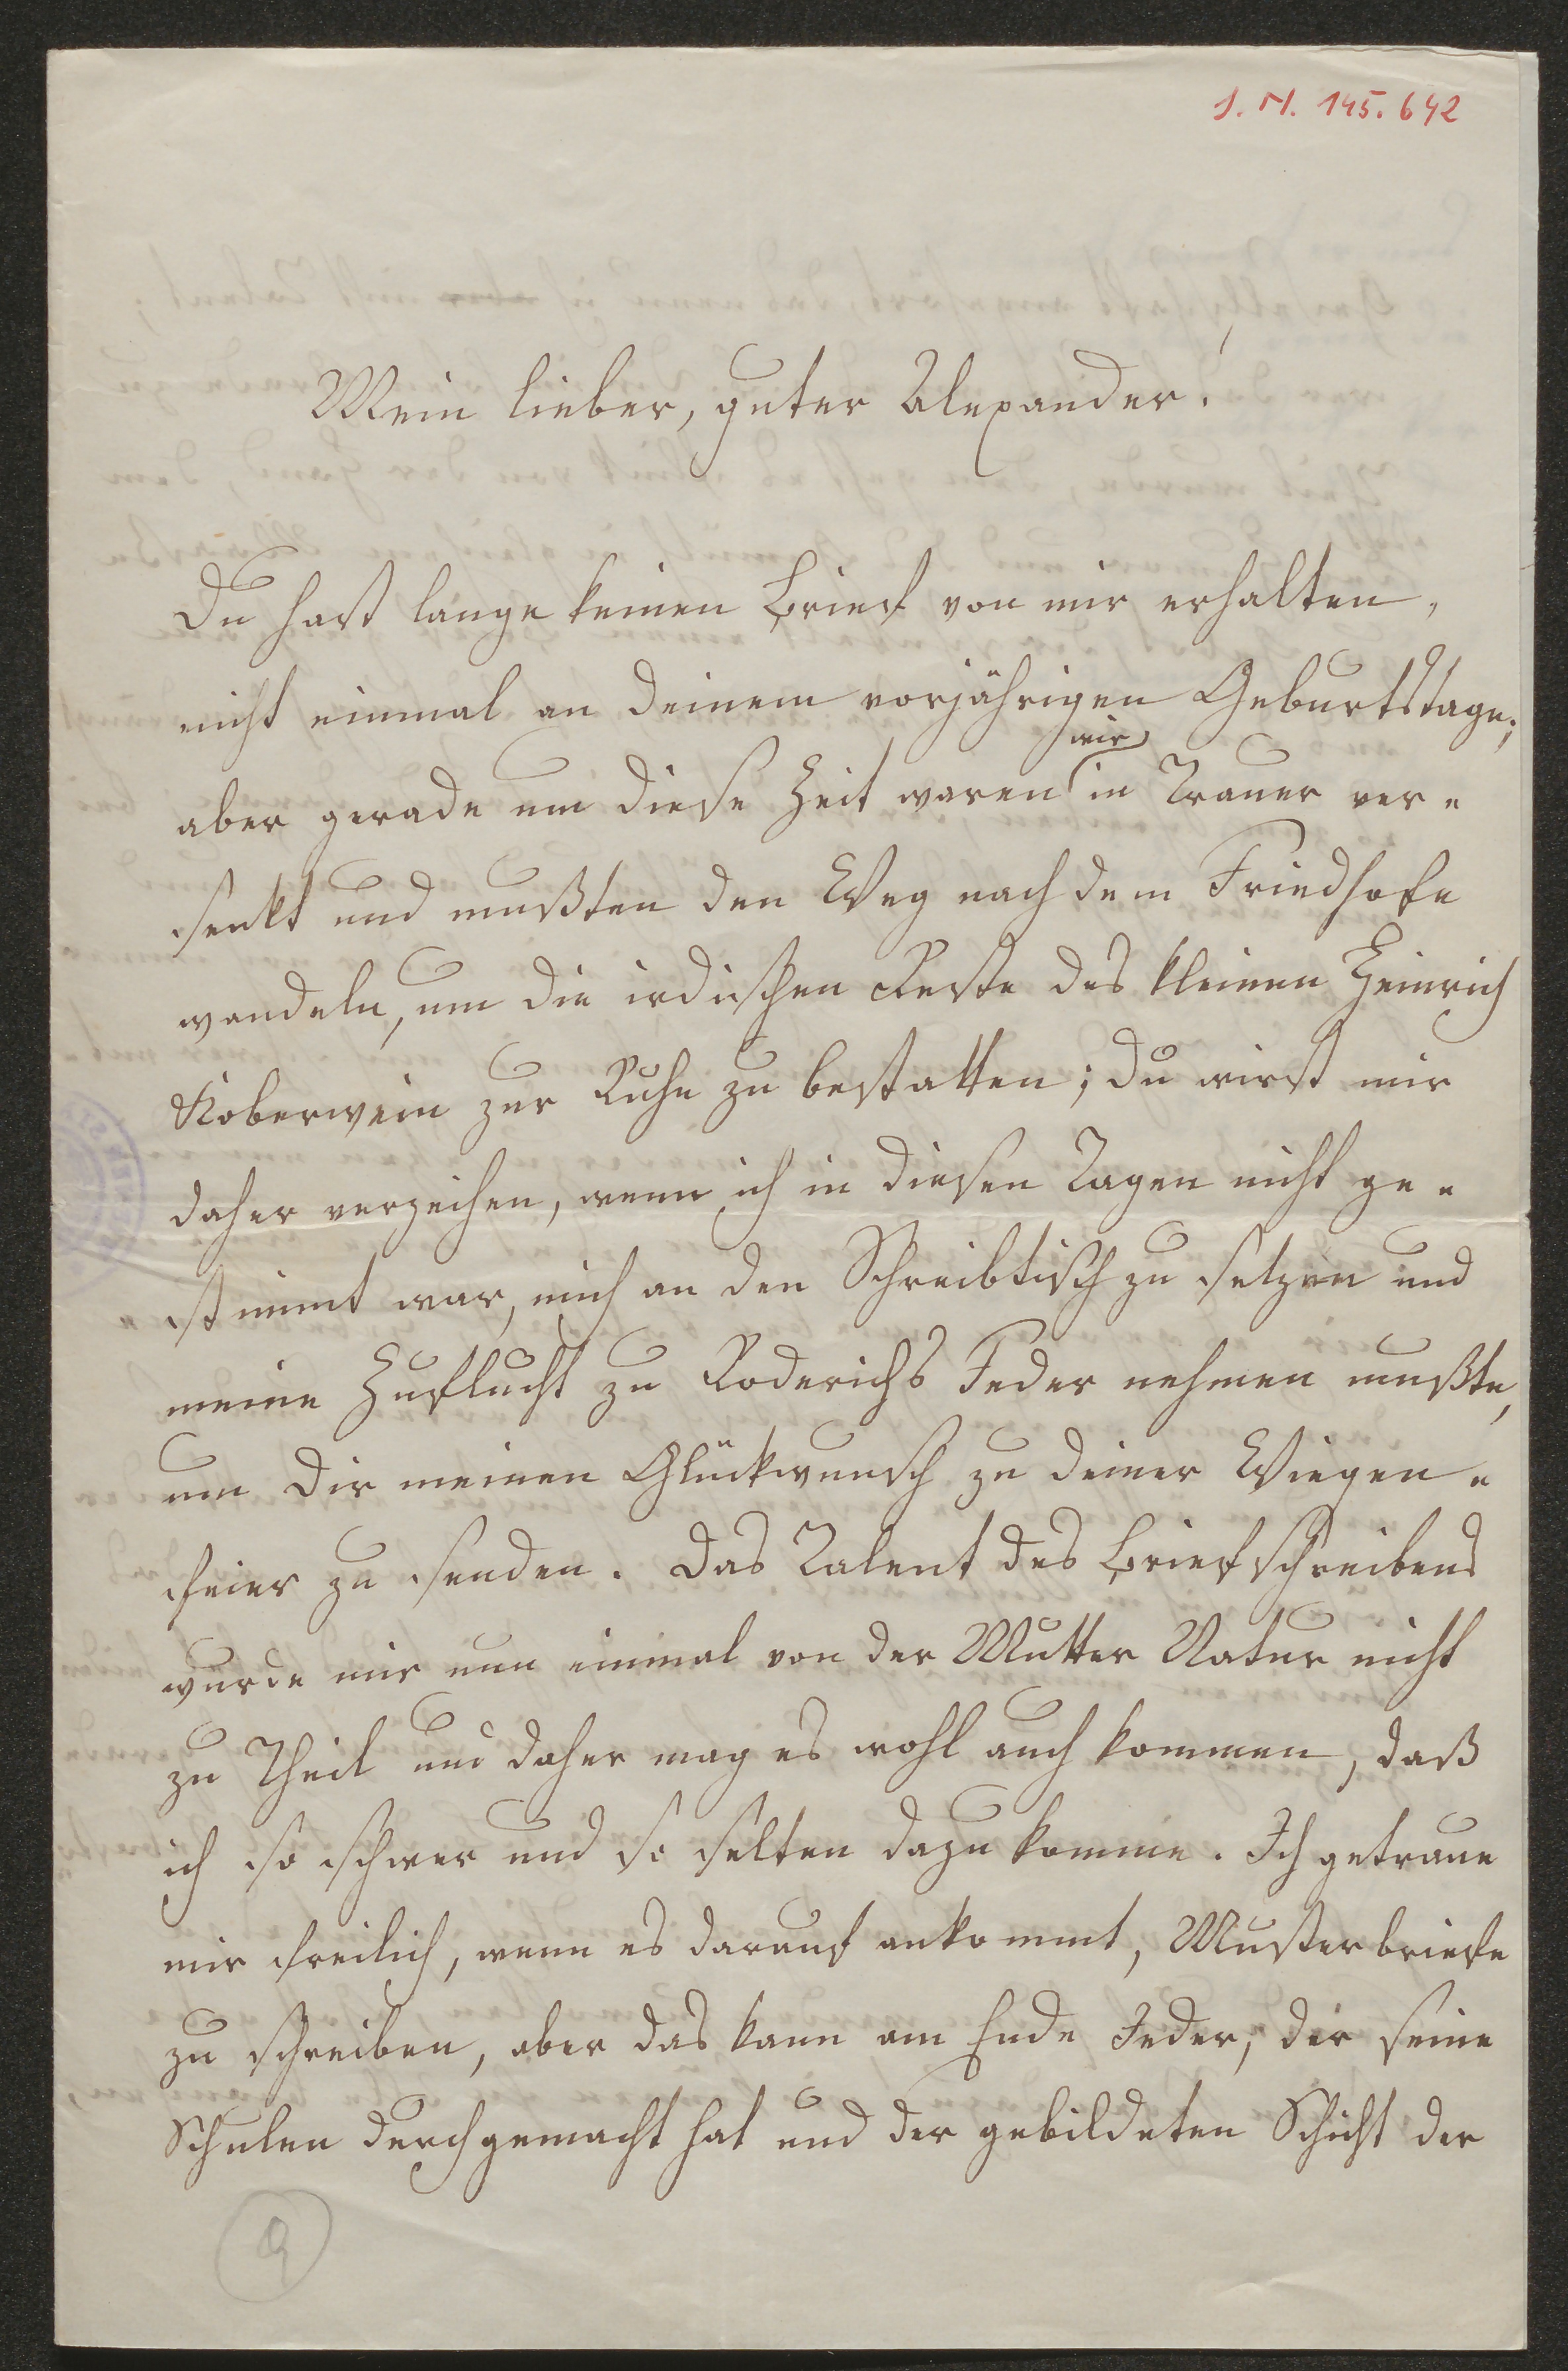 J. N. 145.642
Mein lieber, guter Alexander!
Du hast lange keinen Brief von mir erhalten,
nicht einmal an Deinem vorjährigen Geburtstage;
wir
aber gerade um diese Zeit waren in Trauer ver-
senkt und mußten den Weg nach dem Friedhofe
wandeln, um die irdischen Reste des kleinen Heinrich
Koberwein zur Ruhe zu bestatten; Du wirst mir
daher verzeihen, wenn ich in diesen Tagen nicht ge-
stimmt war, mich an den Schreibtisch zu setzen und
meine Zuflucht zu Roderichs Feder nehmen mußte,
um Dir meinen Glückwunsch zu Deiner Wiegen-
feier zu senden. Das Talent des Briefschreibens
wurde mir nun einmal von der Mutter Natur nicht
zu Theil und daher mag es wohl auch kommen, daß
ich so schwer und so selten dazu komme. Ich getraue
mir freilich, wenn es darauf ankommt, Musterbriefe
zu schreiben, aber das kann am Ende Jeder, der seine
Schulen durchgemacht hat und der gebildeten Schicht der
9